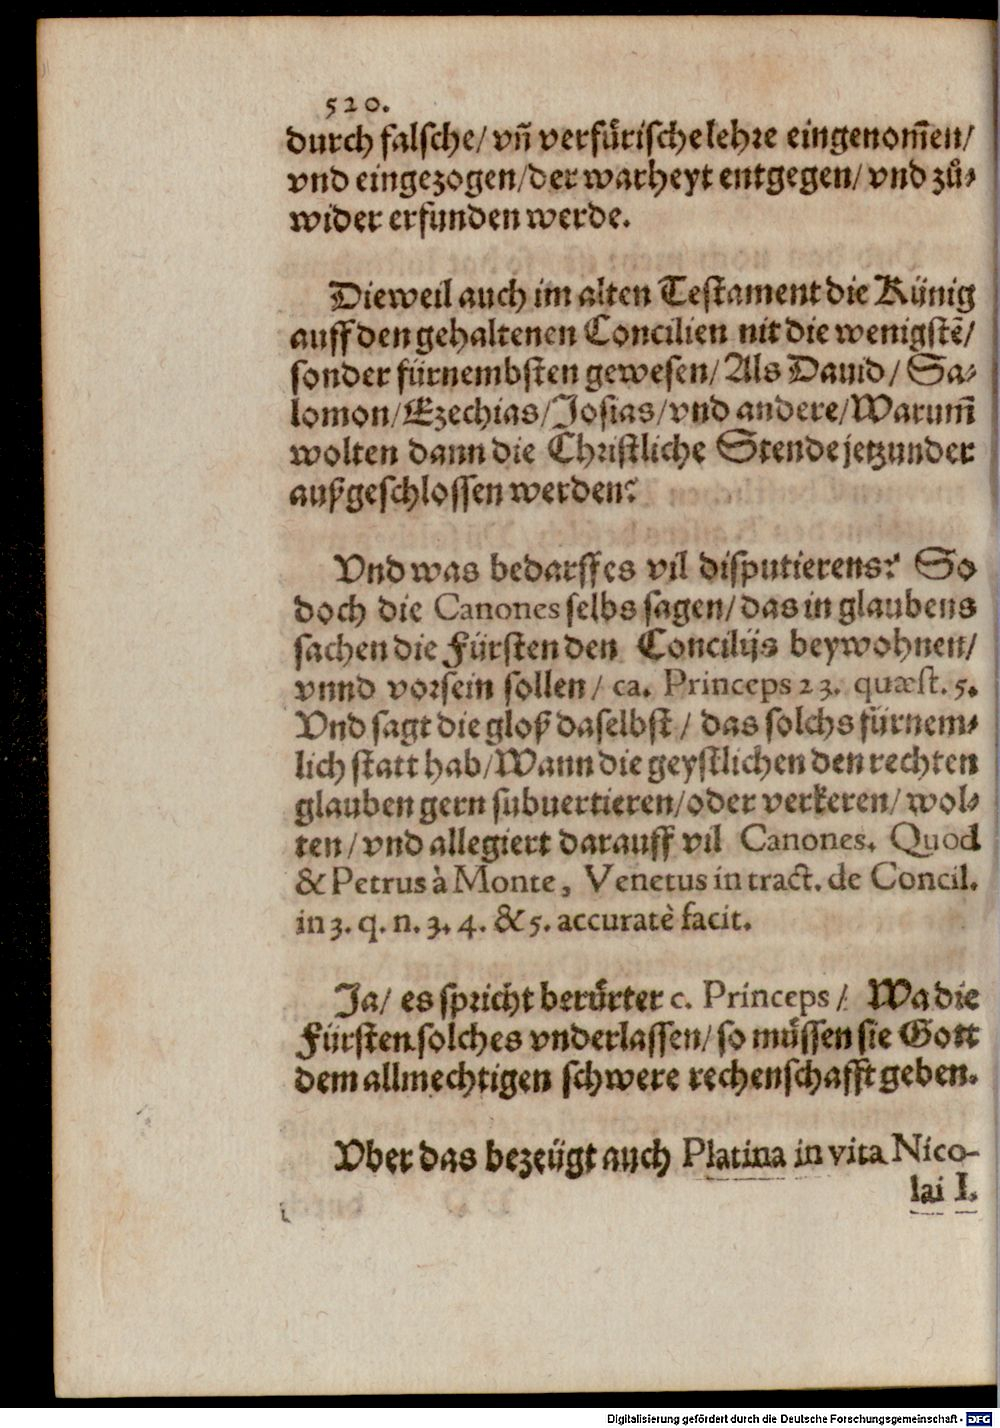 520.
durch falsche/ vñ verfürische lehre eingenom̃en/
vnd eingezogen/ der warheyt entgegen/ vnd zů-
wider erfunden werde.
Dieweil auch im alten Testament die Künig
auff den gehaltenen Concilien nit die wenigstē/
sonder fürnembsten gewesen/ Als Dauid/ Sa-
lomon/ Ezechias/ Josias/ vnd andere/ Warum̃
wolten dann die Christliche Stende jetzunder
außgeschlossen werden?
Vnd was bedarff es vil disputierens? So
doch die Canones selbs sagen/ das in glaubens
sachen die Fürsten den Concilijs beywohnen/
vnnd vorsein sollen/ ca. Princeps 23. quæst. 5.
Vnd sagt die gloß daselbst/ das solchs fürnem-
lich statt hab/ Wann die geystlichen den rechten
glauben gern subuertieren/ oder verkeren/ wol-
ten/ vnd allegiert darauff vil Canones. Quod
& Petrus à Monte, Venetus in tract. de Concil.
in 3. q. n. 3. 4. & 5. accuratè facit.
Ja/ es spricht berůrter c. Princeps/ Wa die
Fürsten solches vnderlassen/ so müssen sie Gott
dem allmechtigen schwere rechenschafft geben.
Vber das bezeügt auch Platina in vita Nico-
lai I.
Digitalisierung gefördert durch die Deutsche Forschungsgemeinschaft - DFG